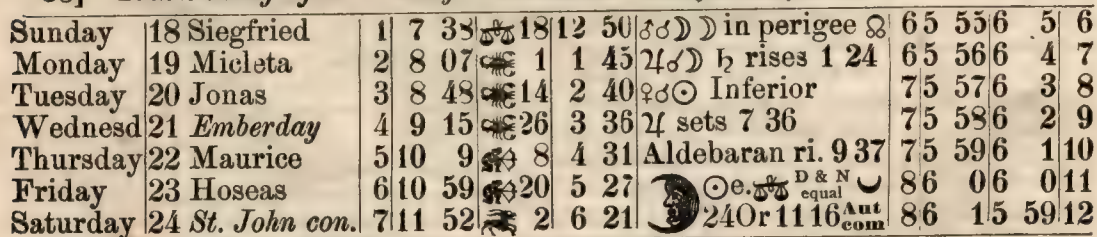 Sunday 18 Siegfried 1 7 38 ♎ 18 12 50 ♂☌☽ ☽ in perigee ☊ 6 5 55 6 5 6
Monday 19 Micleta 2 8 07 ♏ 1 1 45 ♃☌☽ ♄ rises 1 24 6 5 56 6 4 7
Tuesday 20 Jonas 3 8 48 ♏ 14 2 40 ♀☌☉ Inferior 7 5 57 6 3 8
Wednesd 21 Emberday 4 9 15 ♏ 26 3 36 ♃ sets 7 36 7 5 58 6 2 9
Thursday 22 Maurice 5 10 9 ♐ 8 4 31 Aldebaran ri. 9 37 7 5 59 6 1 10
Friday 23 Hoseas 6 10 59 ♐ 20 5 27 ☉e. ♎ D & N equal 8 6 0 6 0 11
Saturday 24 St. John con. 7 11 52 ♑ 2 6 21 24 Or 11 16 Aut com 8 6 1 5 59 12